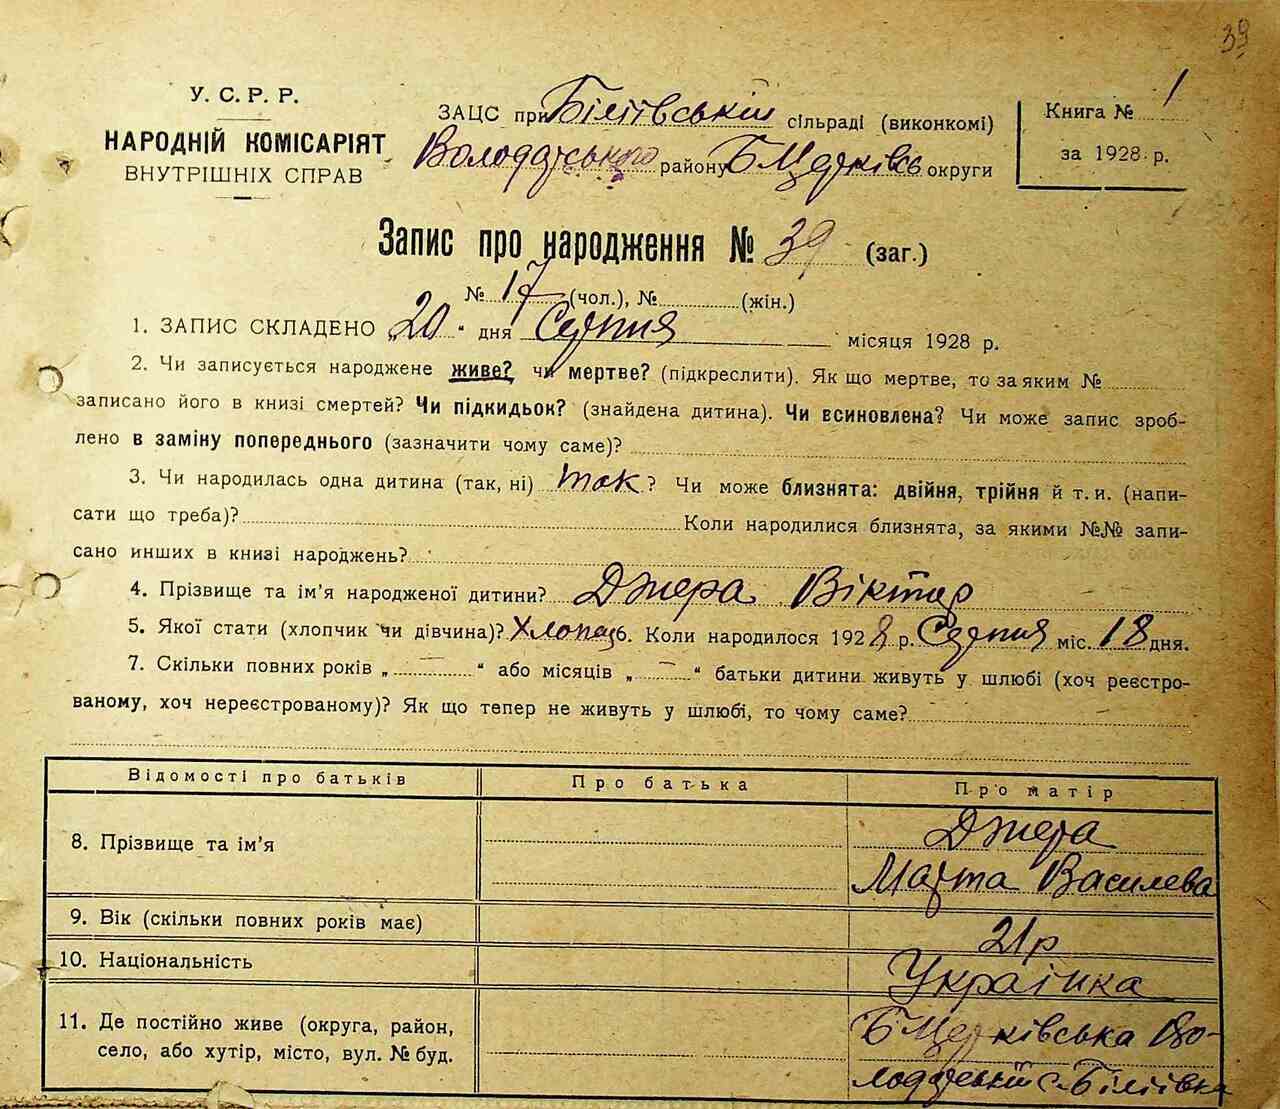 39
У. С. Р. Р.
НАРОДНІЙ КОМІСАРІЯТ
ВНУТРІШНІХ СПРАВ
ЗАЦС при Біліївській сільраді (виконкомі)
Володарського району БЦерківсь округи
Книга № 1
за 1928 р.
Запис про народження № 39 (заг.)
№ 17 (чол.), № (жін.)
1. ЗАПИС СКЛАДЕНО „20“ дня Серпня місяця 1928 р.
2. Чи записується народжене живе? чи мертве? (підкреслити). Як що мертве, то за яким №
записано його в книзі смертей? Чи підкидьок? (знайдена дитина). Чи всиновлена? Чи може запис зроб-
лено в заміну попереднього (зазначити чому саме)?
3. Чи народилась одна дитина (так, ні) так? Чи може близнята: двійня, трійня й т. и. (напи-
сати що треба)? Коли народилися близнята, за якими №№ запи-
сано инших в книзі народжень?
4. Прізвище та ім'я народженої дитини? Джера Віктор
5. Якої стати (хлопчик чи дівчина)? Хлопець. Коли народилося 1928 р. Серпня міс. 18 дня.
7. Скільки повних років „ — “ або місяців „ — “ батьки дитини живуть у шлюбі (хоч реєстро-
ваному, хоч нереєстрованому)? Як що тепер не живуть у шлюбі, то чому саме?
Відомості про батьків Про батька Про матір
8. Прізвище та ім'я Джера
Марта Василева
9. Вік (скільки повних років має) 21р
10. Національність Українка
11. Де постійно живе (округа, район, БЦерківська Во-
село, або хутір, місто, вул. № буд. лодарській с. Біліївка